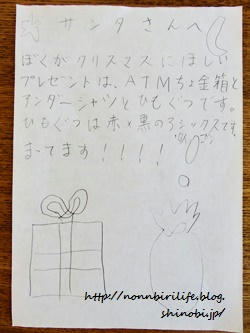 サンタさんへ
ぼくがクリスマスにほしい
プレゼントは、ATMちょ金箱と
アンダーシャツとひもぐつです。
ひもぐつは赤×黒の
まてます！！！！
http://nonnbirilife.blog.
shinobi.jp/